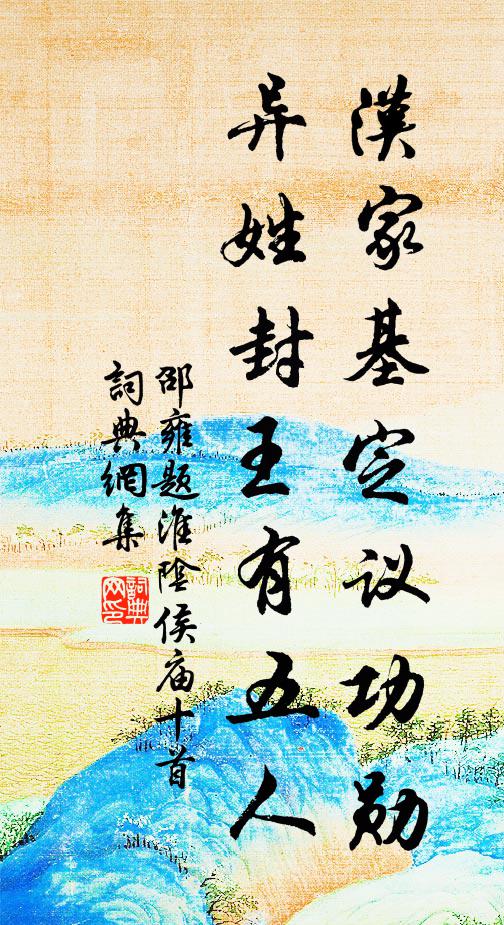 漢家基定议功勋
异姓封王有五人
邵雍题淮陰侯庙十首
詞典網集
詞典网印